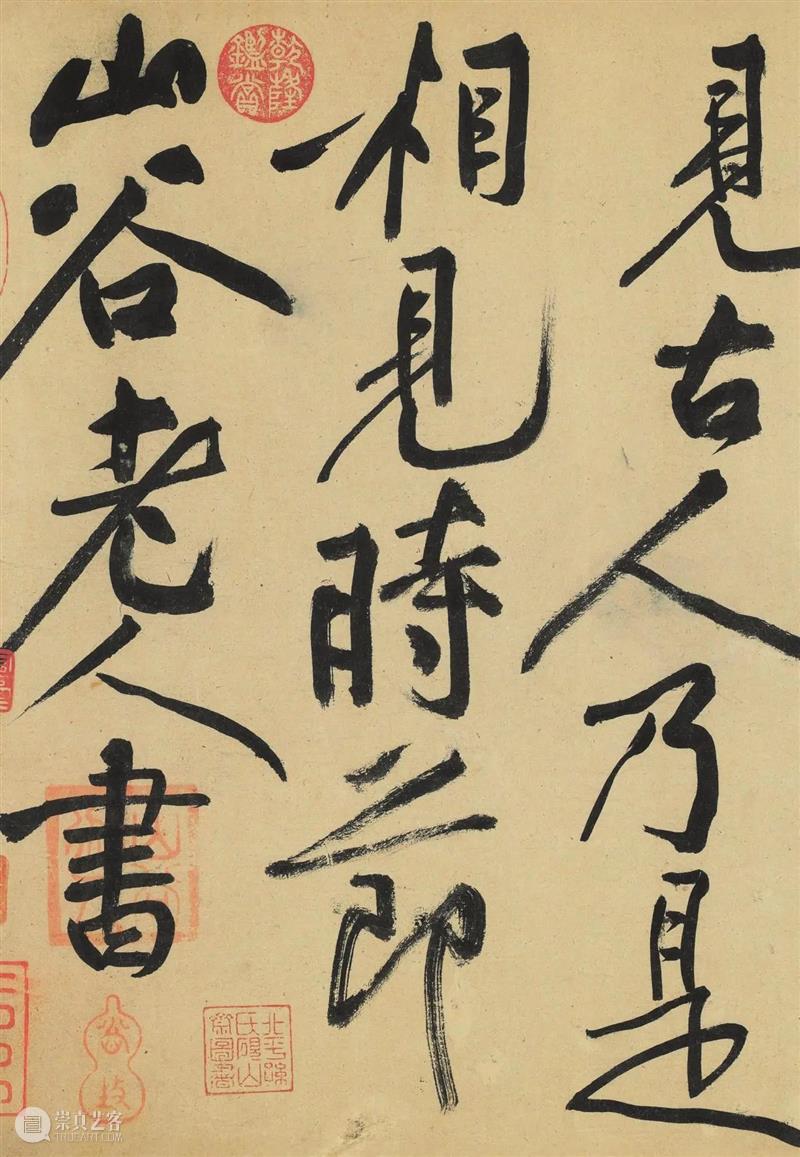 見古人乃是
相見時節
山谷老人書
乾隆
鑑賞
北平孫
氏硯山
齋圖書
崇真艺客
WWW.TRUEART.COM